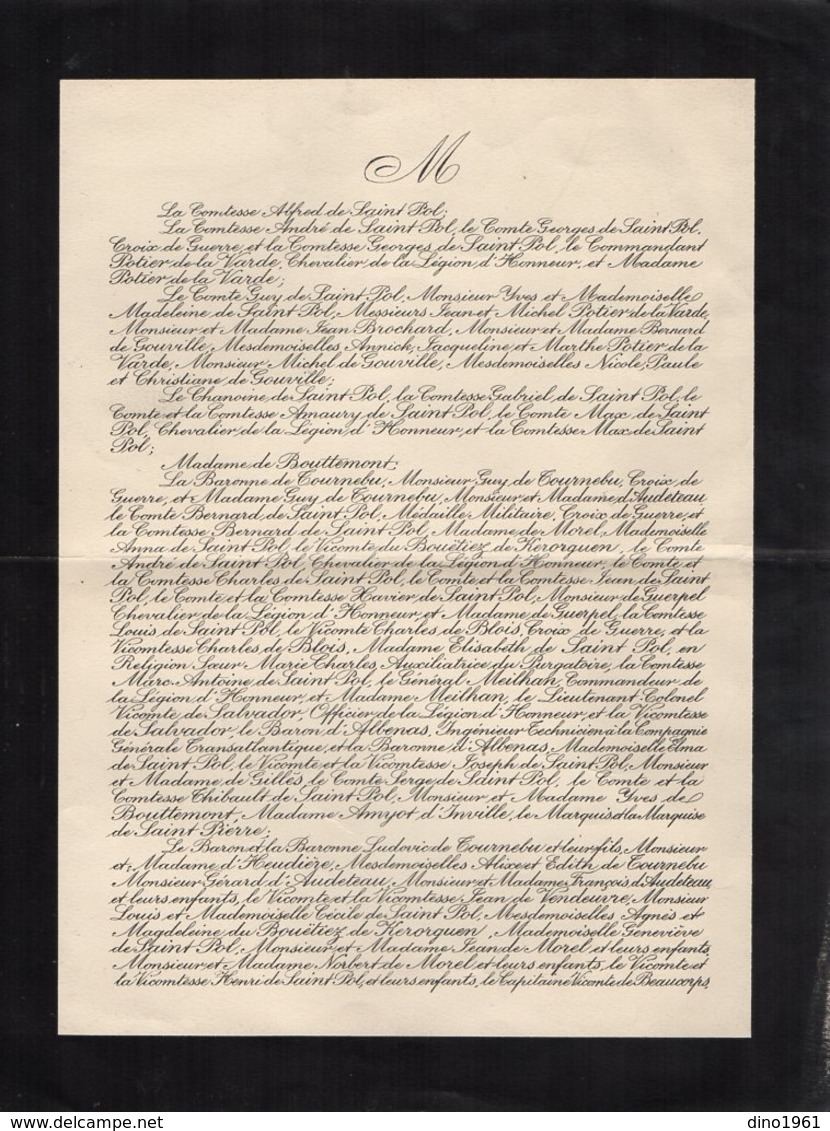 M
La Comtesse Alfred de Saint Pol;
La Comtesse André de Saint Pol, le Comte Georges de Saint Pol,
Croix de Guerre, et la Comtesse Georges de Saint Pol, le Commandant
Potier de la Varde, Chevalier de la Légion d'Honneur, et Madame
Potier de la Varde;
Le Comte Guy de Saint Pol, Monsieur Yves et Mademoiselle
Madeleine de Saint Pol, Messieurs Jean et Michel Potier de la Varde,
Monsieur et Madame Jean Brochard, Monsieur et Madame Bernard
de Gouville, Mesdemoiselles Annick, Jacqueline, et Marthe Potier de la
Varde, Monsieur Michel de Gouville, Mesdemoiselles Nicole, Paule
et Christiane de Gouville;
Le Chanoine de Saint Pol, la Comtesse Gabriel de Saint Pol, le
Comte et la Comtesse Amaury de Saint Pol, le Comte Max de Saint
Pol, Chevalier de la Légion d'Honneur, et la Comtesse Max de Saint
Pol;
Madame de Bouttemont;
La Baronne de Tournebu, Monsieur Guy de Tournebu, Croix de
Guerre, et Madame Guy de Tournebu, Monsieur et Madame d'Audeteau,
le Comte Bernard de Saint Pol, Médaille Militaire, Croix de Guerre, et
la Comtesse Bernard de Saint Pol, Madame de Morel, Mademoiselle
Anna de Saint Pol, le Vicomte du Bouëtiez de Kerorguen, le Comte
André de Saint Pol, Chevalier de la Légion d'Honneur, le Comte et
la Comtesse Charles de Saint Pol, le Comte et la Comtesse Jean de Saint
Pol, le Comte et la Comtesse Xavier de Saint Pol, Monsieur de Guerpel
Chevalier de la Légion d'Honneur, et Madame de Guerpel, la Comtesse
Louis de Saint Pol, le Vicomte Charles de Blois, Croix de Guerre, et la
Vicomtesse Charles de Blois, Madame Elisabeth de Saint Pol, en
Religion Sœur Marie Charles, Auxiliatrice du Purgatoire, la Comtesse
Marc-Antoine de Saint Pol, le Général Meilhan, Commandeur de
la Légion d'Honneur, et Madame Meilhan, le Lieutenant-Colonel
Vicomte de Salvador, Officier de la Légion d'Honneur, et la Vicomtesse
de Salvador, le Baron d'Albenas, Ingénieur Technicien à la Compagnie
Générale Transatlantique, et la Baronne d'Albenas, Mademoiselle Elma
de Saint Pol, le Vicomte et la Vicomtesse Joseph de Saint Pol, Monsieur
et Madame de Gillès, le Comte Serge de Saint Pol, le Comte et la
Comtesse Thibault de Saint Pol, Monsieur et Madame Yves de
Bouttemont, Madame Amyot d'Inville, le Marquis et la Marquise
de Saint Pierre;
Le Baron et la Baronne Ludovic de Tournebu et leur fils, Monsieur
et Madame d'Heudière, Mesdemoiselles Alix et Edith de Tournebu
Monsieur Gérard d'Audeteau, Monsieur et Madame François d'Audeteau,
et leurs enfants, le Vicomte et la Vicomtesse Jean de Vendeuvre, Monsieur
Louis et Mademoiselle Cécile de Saint Pol, Mesdemoiselles Agnès et
Magdeleine du Bouëtiez de Kerorguen, Mademoiselle Geneviève
de Saint Pol, Monsieur et Madame Jean de Morel et leurs enfants,
Monsieur et Madame Norbert de Morel, et leurs enfants, le Vicomte et
la Vicomtesse Henri de Saint Pol, et leurs enfants, le Capitaine Vicomte de Beaucorps,
delcampe.net
dino1961